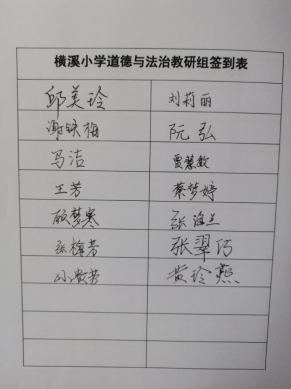 横溪小学道德与法治教研组签到表
邱美玲 刘莉丽
谢铁梅 阮弘
马洁 贾慧敏
王芳 蔡梦婷
顾梦寒 张
张梅芳 张翠巧
孙贵芳 黄玲燕